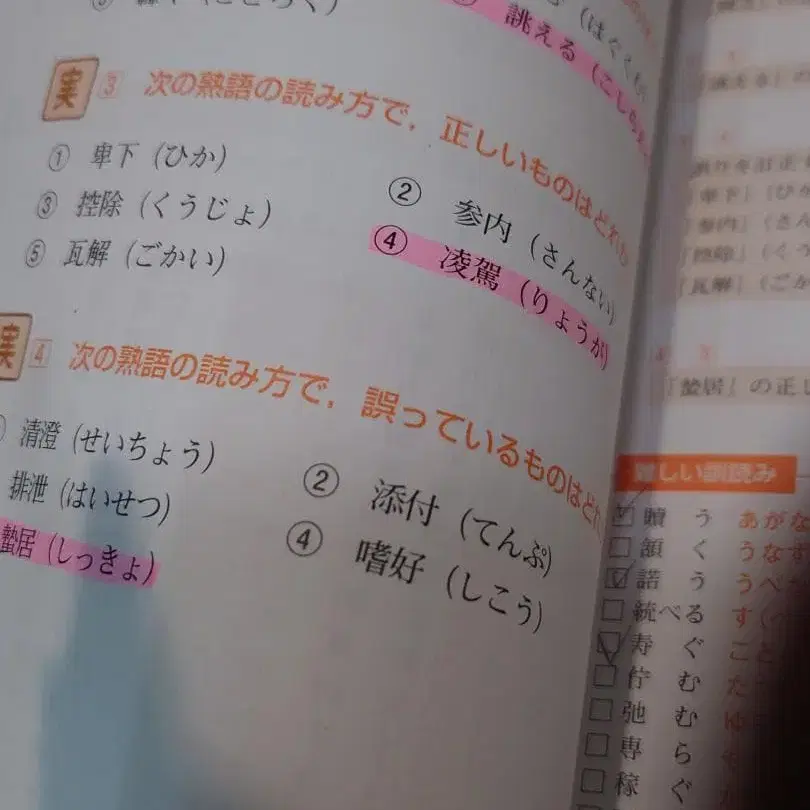 誂える（こしらえ
実 3 次の熟語の読み方で，正しいものはどれか
① 卑下（ひか）
② 参内（さんない）
③ 控除（くうじょ）
④ 凌駕（りょうが）
⑤ 瓦解（ごかい）
実 4 次の熟語の読み方で，誤っているものはどれ
清澄（せいちょう）
② 添付（てんぷ）
排泄（はいせつ）
④ 嗜好（しこう）
蟄居（しっきょ）
「卑下」（ひ
「参内」（さ
「控除」（く
「瓦解」（ごか
「蟄居」の正し
難しい訓読み
贖う あがな
頷く うなず
諾う うべ
統べる す（
寿ぐ こと
佇む た
弛む ゆ
専ら も
稼ぐ